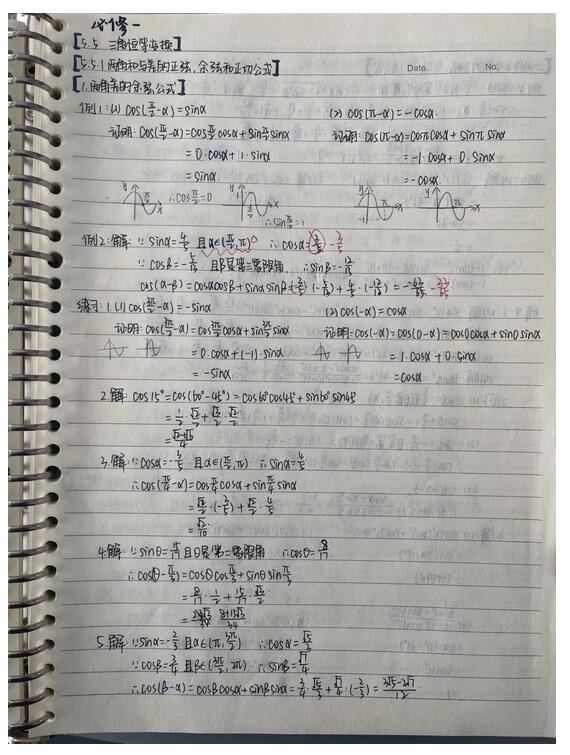 必修一
【5.5 三角恒等变换】
【5.5.1 两角和与差的正弦,余弦和正切公式】 Date. No.
【1.两角差的余弦公式】
例1:(1) cos(π/2-α)=sinα (2) cos(π-α)=-cosα
证明: cos(π/2-α)=cosπ/2cosα+sinπ/2sinα 证明: cos(π-α)=cosπcosα+sinπsinα
=0·cosα+1·sinα =-1·cosα+0·sinα
=sinα =-cosα
y π/2 x ∴cosπ/2=0 y 1 π/2 x ∴sinπ/2=1 y π x -1 y π x
例2:解: ∵sinα=4/5 且α∈(π/2,π) ∴cosα=3/5 -3/5
∵cosβ=-5/13 且β是第三象限角 ∴sinβ=-12/13
cos(α-β)=cosαcosβ+sinαsinβ=(-3/5)·(-5/13)+4/5·(-12/13)= -33/65
练习:1.(1) cos(3π/2-α)=-sinα (2) cos(-α)=cosα
证明: cos(3π/2-α)=cos3π/2cosα+sin3π/2sinα 证明: cos(-α)=cos(0-α)=cos0cosα+sin0sinα
=0·cosα+(-1)·sinα =1·cosα+0·sinα
=-sinα =cosα
2.解: cos15°=cos(60°-45°)=cos60°cos45°+sin60°sin45°
=1/2·√2/2+√3/2·√2/2
=√2+√6/4
3.解: ∵cosα=-3/5 且α∈(π/2,π) ∴sinα=4/5
∴cos(π/4-α)=cosπ/4cosα+sinπ/4sinα
=√2/2·(-3/5)+√2/2·4/5
=√2/10
4.解: ∵sinθ=15/17且θ是第二象限角 ∴cosθ=8/17
∴cos(θ-π/3)=cosθcosπ/3+sinθsinπ/3
=8/17·1/2+15/17·√3/2
= 8+15√3/34
5.解: ∵sinα=-2/3 且α∈(π,3π/2) ∴cosα=√5/3
∵cosβ=3/4 且β∈(3π/2,2π) ∴sinβ=√7/4
∴cos(β-α)=cosβcosα+sinβsinα=3/4·√5/3+√7/4·(-2/3)=3√5-2√7/12